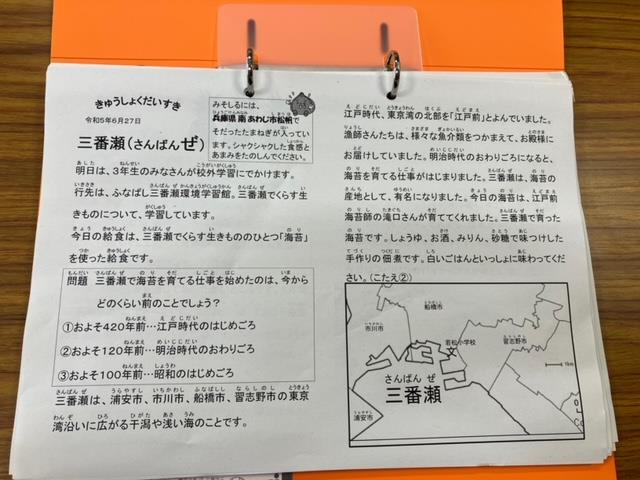 きゅうしょくだいすき
令和5年6月27日
三番瀬(さんばんぜ)
みそしるには、
兵庫県 南あわじ市松帆で
そだったたまねぎが入ってい
ます。シャクシャクした食感と
あまみをたのしんでください。
明日は、3年生のみなさんが校外学習にでかけます。
行先は、ふなばし三番瀬環境学習館。三番瀬でくらす生
きものについて、学習しています。
今日の給食は、三番瀬でくらす生きもののひとつ「海苔」
を使った給食です。
問題 三番瀬で海苔を育てる仕事を始めたのは、今から
どのくらい前のことでしょう?
①およそ420年前…江戸時代のはじめごろ
②およそ120年前…明治時代のおわりごろ
③およそ100年前…昭和のはじめごろ
三番瀬は、浦安市、市川市、船橋市、習志野市の東京
湾沿いに広がる干潟や浅い海のことです。
江戸時代、東京湾の北部を「江戸前」とよんでいました。
漁師さんたちは、様々な魚介類をつかまえて、お殿様に
お届けしていました。明治時代のおわりごろになると、
海苔を育てる仕事がはじまりました。三番瀬は、海苔の
産地として、有名になりました。今日の海苔は、江戸前
海苔師の滝口さんが育ててくれました。三番瀬で育った
海苔です。しょうゆ、お酒、みりん、砂糖で味つけした
手作りの佃煮です。白いごはんといっしょに味わってくだ
さい。(こたえ②)
船橋市
市川市
若松小学校
習志野市
1km
さんばん ぜ
三番瀬
浦安市